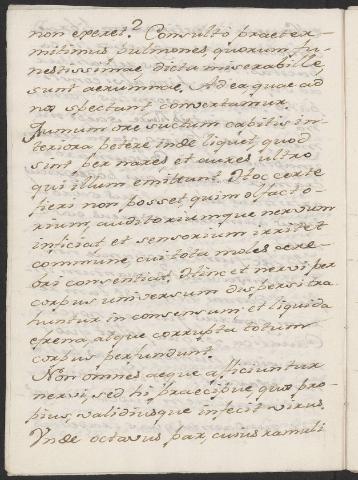 non exeret? Consulto praeter
mitimus pulmones, quorum fu-
nestissimae dictu miserabille
sunt aerumnae. Ad ea quae ad
nos spectant convertamur.
Fumum ore suctum capitis in-
teriora petere inde liquet, quod
sint per nares et aures ultro
qui illum emittunt. Hoc certe
fieri non posset quim olfacto-
rium, auditoriumque nervum
inficiat et sensorium irritet
commune, cui tota moles cere-
bri consentiat. Hinc et nervi per
corpus universum dispersi tra-
huntur in consensum et liquida
efrena, atque corrupta totum
corpus perfundunt.
Non omnes aeque afficiuntur
nervi, sed hi praecipue, quos pro-
pius, validiusque infecit virus.
Unde octavus par, cuius ramuli